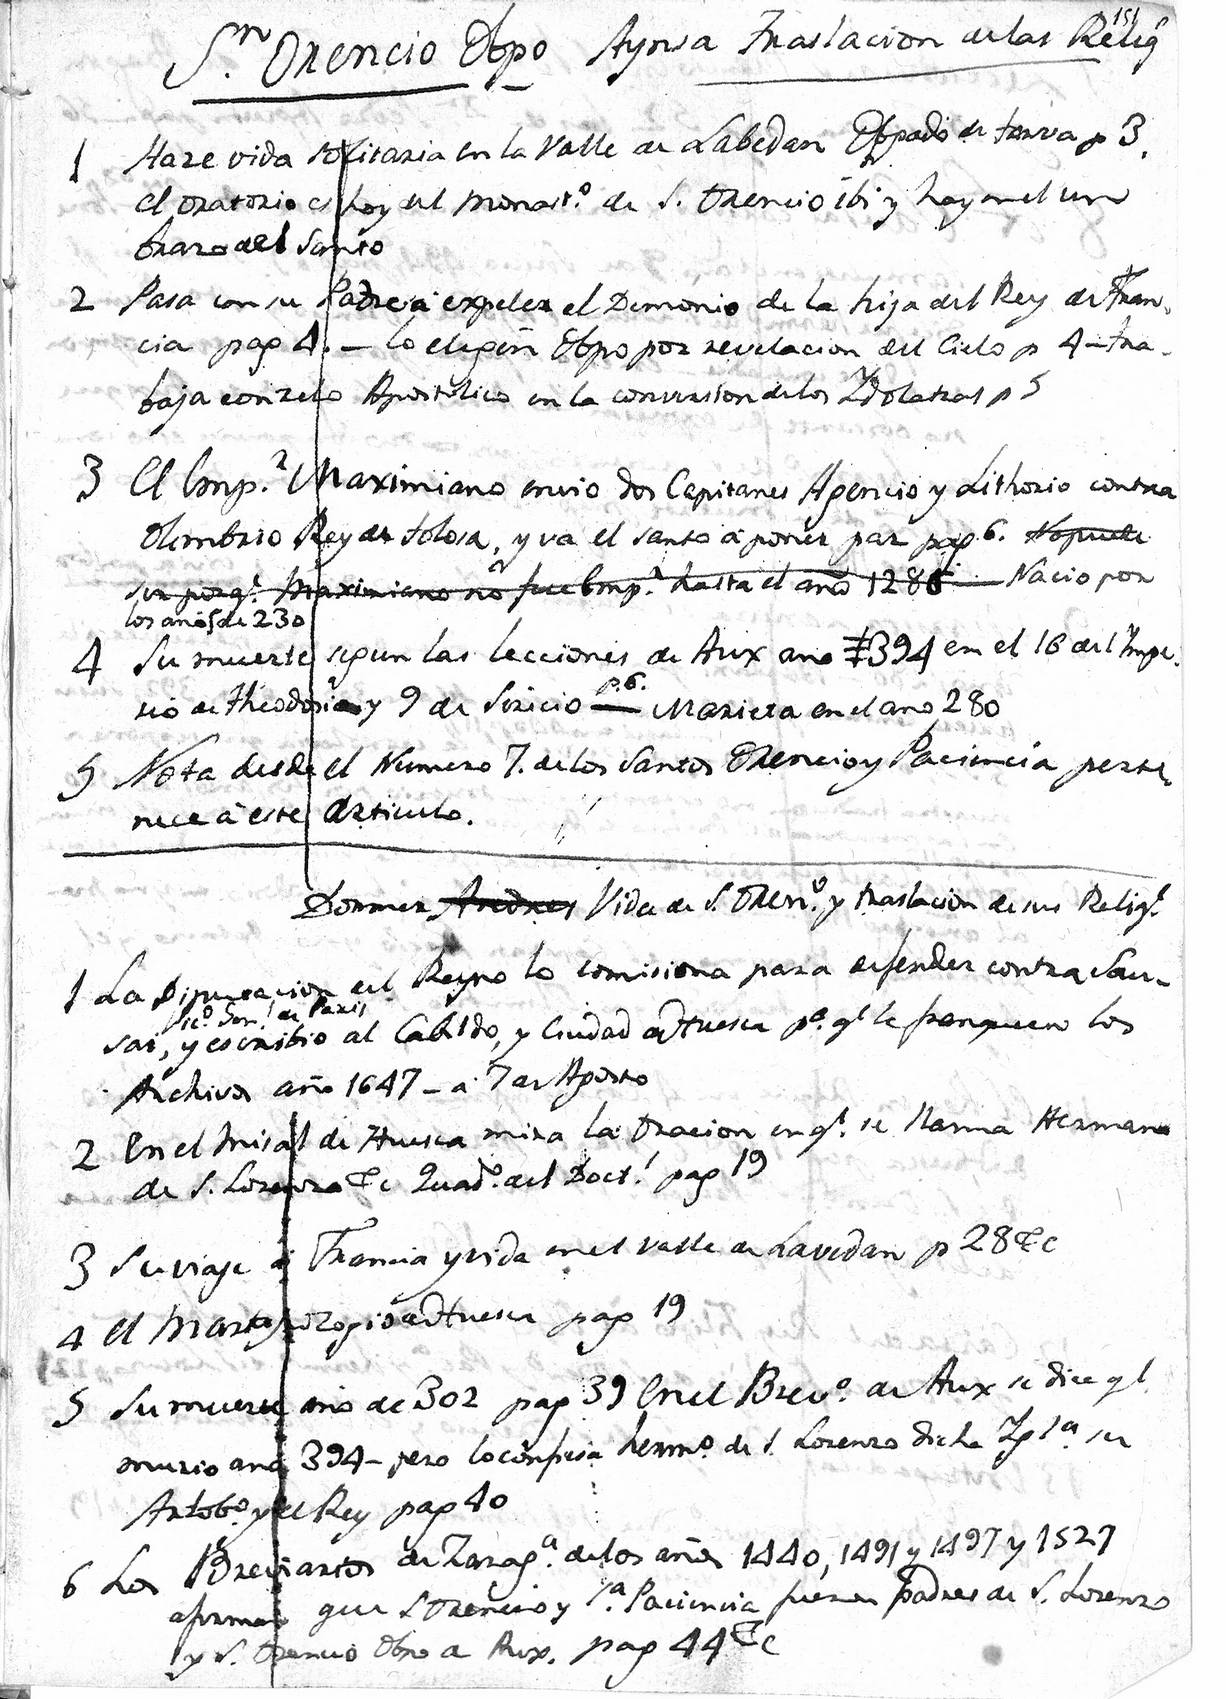 151
Sn. Orencio Obpo Aynsa Traslacion delas Reliqs
1 Haze vida solitaria en la Valle de Labedan Obpado de tarva p 3.
el oratorio es hoy del monasto. de S. Orencio ibi y hay en el un
brazo del Santo
2 Pasa con su Padre à expeler el Demonio de la hija del Rey de Fran-
cia pag 4. — lo eligen Obpo por revelacion del Cielo p 4 — tra-
baja con zelo Apostolico en la conversion delos Ydolatras p 5
3 El Empr. Maximiano envio dos Capitanes Agencio y Lithorio contra
Olimbrio Rey de tolosa, y va el santo à poner paz pag 6. No puede
ser porq. Maximiano no fue Empr. hasta el año 1286 — Nacio por
los años de 230
4 Su muerte segun las lecciones de Aux año 394 en el 16 del Impe-
rio de Theodosio y 9 de Siricio p. 6. — Marieta en el año 280
5 Nota desde el Numero 7. de los Santos Orencio y Paciencia perte-
nece à este articulo.
Dormer Andres Vida de S. Oreno. y traslacion de sus Reliqs.
1 La Diputacion del Reyno lo comisiona para defender contra Sau-
Sor. de Paris
sai, y escribio al Cabildo, y Ciudad de Huesca pa. q. le franqueen los
Archivos año 1647 — a 7 de Agosto
2 En el Misal de Huesca mira la Oracion en q. se llama Hermano
de S. Lorenzo &c Quado. del Doctl. pag 19
3 Su viaje à Francia y vida en el valle de Lavedan p 28 &c
4 el Martyrologio de Huesca pag 19
5 Su muerte año de 302 pag 39 En el Brevo. de Aux se dice q
murio año 394 — pero lo confiesa hermo. de S. Lorenzo dicha Yglã su
Arzobo. y el Rey pag 40
6 Los Breviarios de Zaraga. de los años 1440, 1491 y 1497 y 1527
afirman que S Orencio y Sa. Paciencia fueron padres de S. Lorenzo
y S. Orencio Obpo de Aux. pag 44 &c